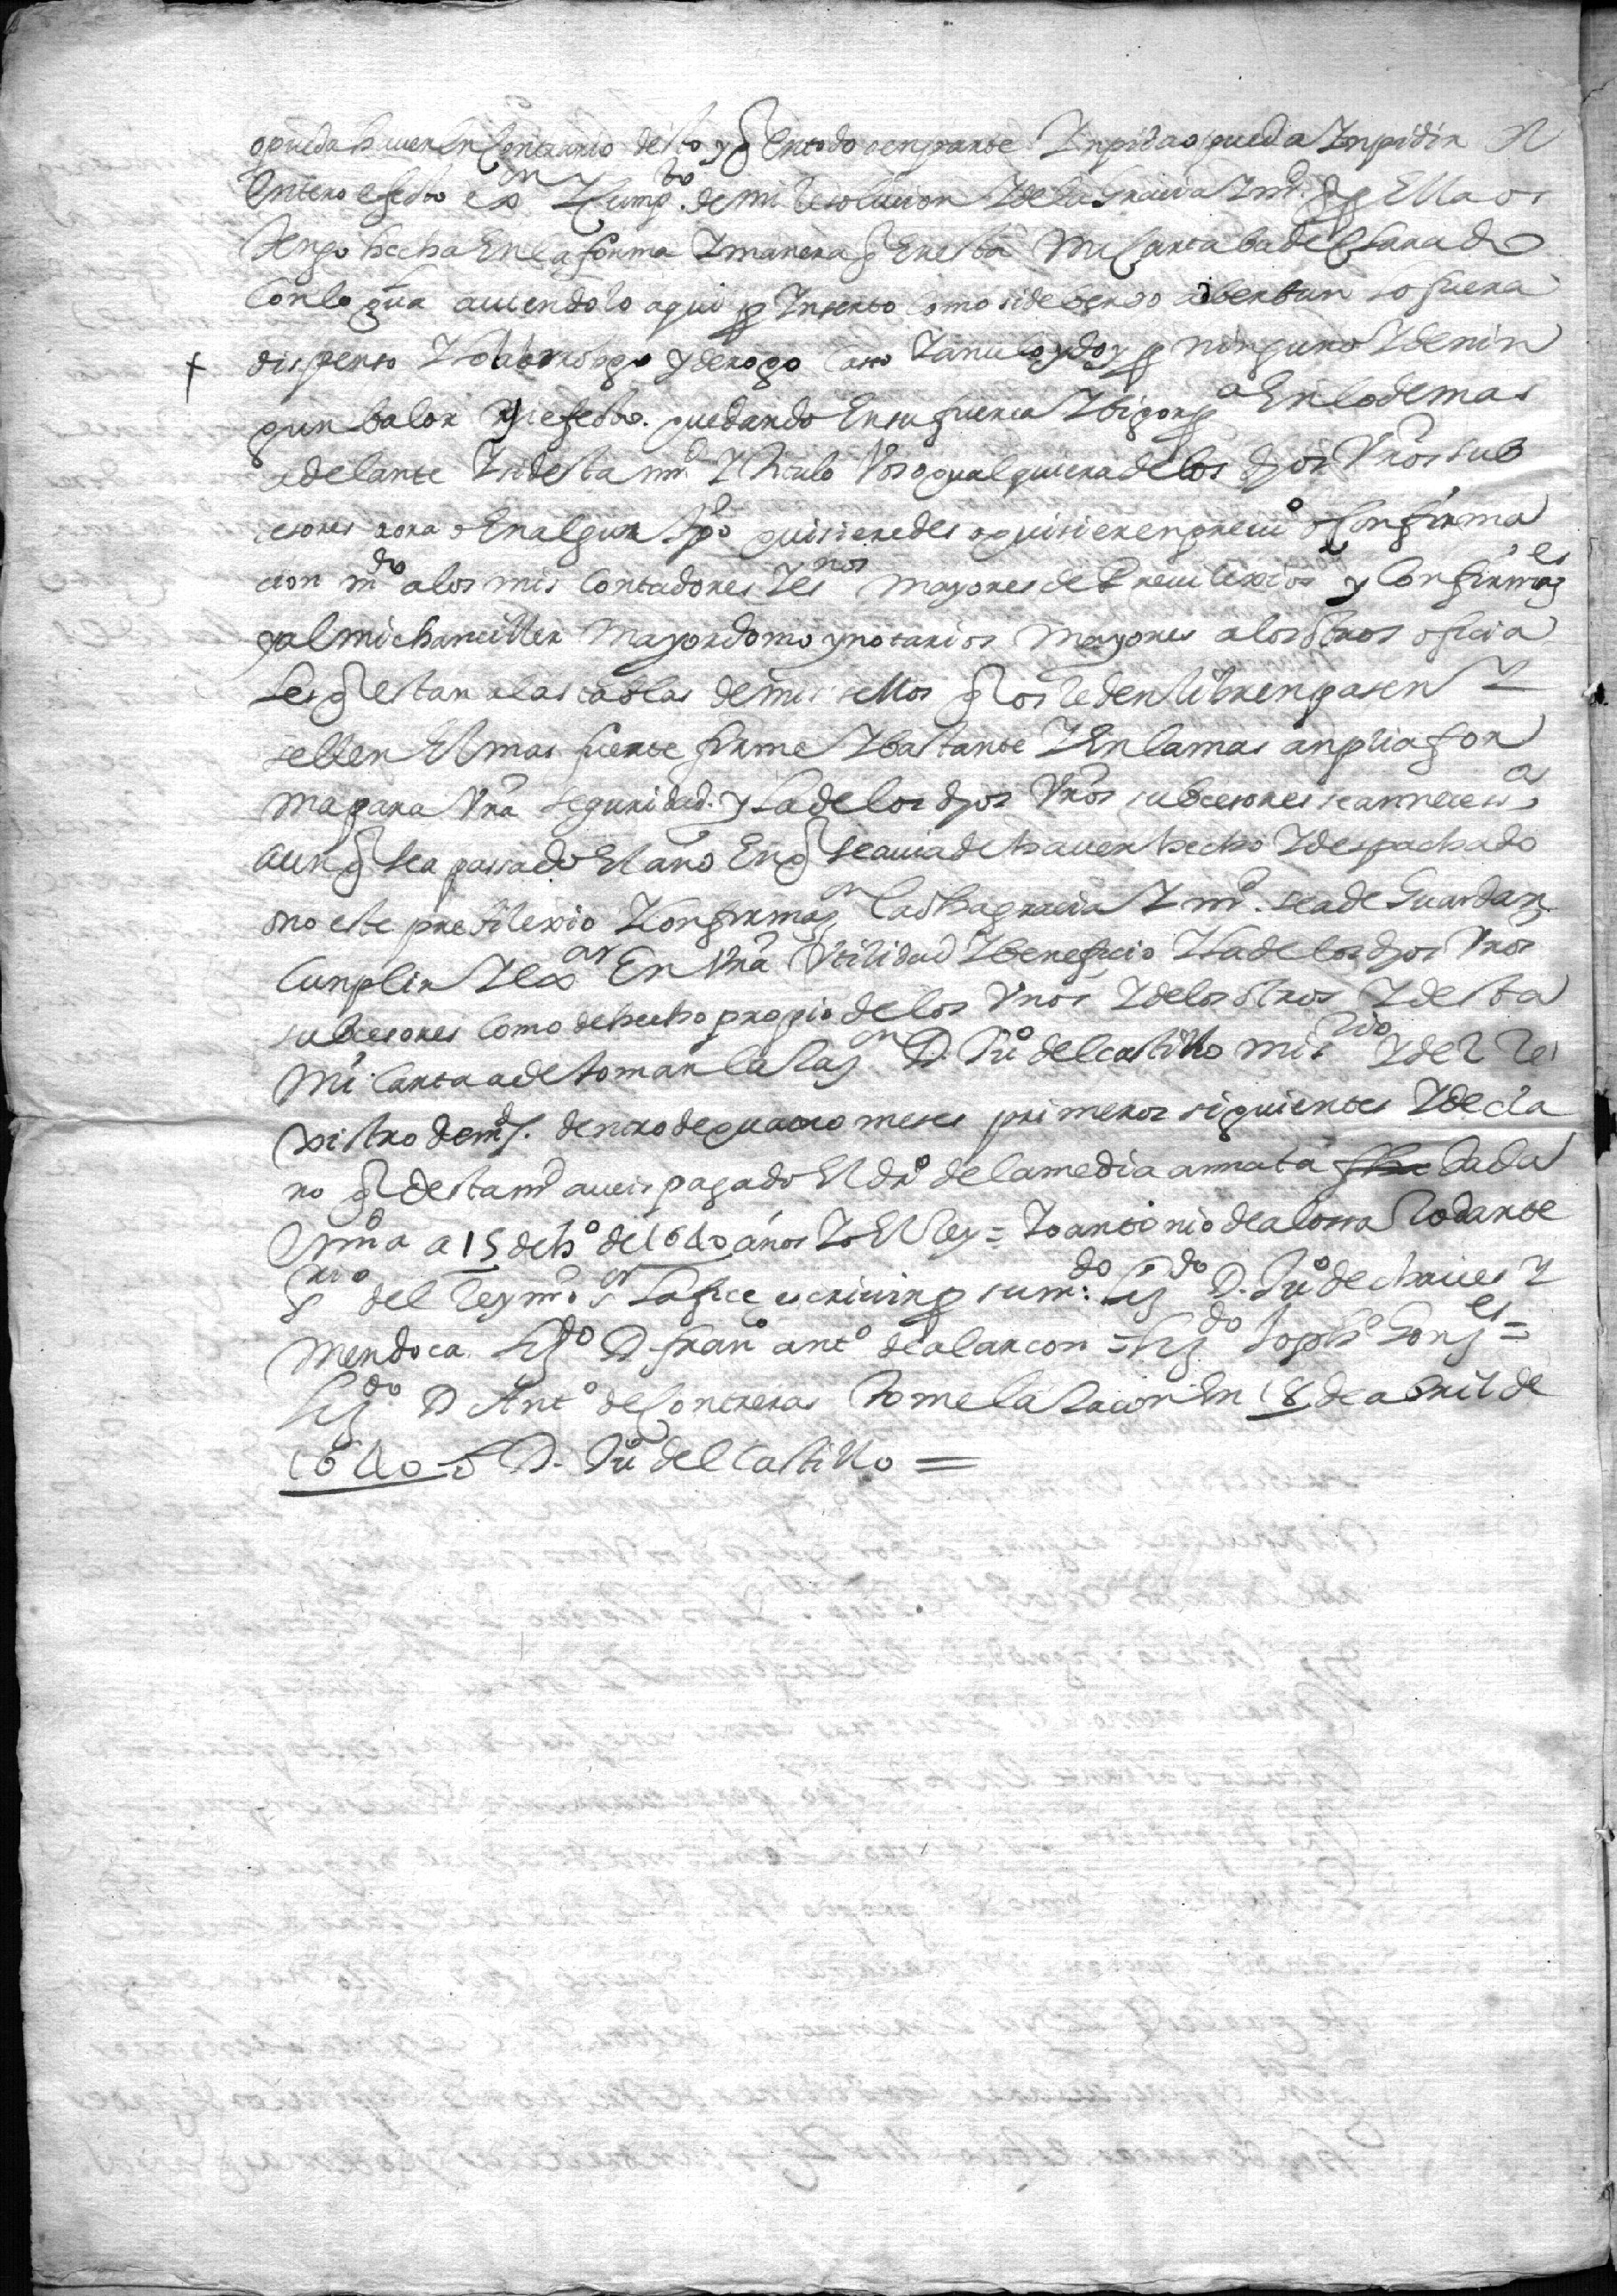 o pueda hauer en Contrario desto y q̃ En todo o en parte Ynpida o pueda Ynpidir El
Entero efecto ex.on Y cump.to de mi Resolucion Y de la Gracia Y md. q̃ por Ella os
Tengo hecha En la forma Y manera q̃ En esta mi Carta ba declarado
Con lo qual auiendolo aqui por Ynserto Como si de berbo aberbun lo fuera
+ dispenso Y abrogo y derogo Caso Y anulo y doy por ninguno Y de nin
gun balor ni efecto. quedando En su fuerca Y bigor pa En lo de mas
adelante Y si desta md. Y titulo Vos o qualquiera de los dhos Vros sub
cesores aora o En algun tpo quisieredes o quisieren preuio o Confirma
cion mdo a los mis Contadores Y esnos mayores de Preuilexios y Confirmaes
y al mi chanciller mayordomo y notarios mayores a los otros oficia
les q̃ estan a las tablas de mis sellos q̃ os le den libren pasen Y
sellen El mas fuerte firme Y bastante Y En la mas anplia for
ma para Vra seguridad. y la de los dhos Vros subcesores sea necesa
aun q̃ sea passado El ano En q̃ se auia de hauer hecho Y despachado
o no este preBilexio Y Confirmaon La dha gracia Y md. sea de Guardar
Cunplir Y exar En Vra Vtilidad Y beneficio Y la de los dhos Vros
subcesores Como de hecho propio de los Vnos Y de los otros Y desta
mi Carta a de tomar la Raon D. Juo del castillo mi srio Y del Re
xistro de mds. dentro de quatro meses primeros siguientes Y decla
ro q̃ desta md aueis pagado El dro de la media annata Dada
En ma a 15 de ho de 1640 años Yo El Rey = Yo antonio de alossa Rodarte
srio del Rey nro sor La fice escriuir por su mdo: Licdo D. Juo de chaues Y
Mendoca Licdo D. Frano anto de alarcon = Licdo Joseph Gonces =
Licdo D Anto de Contreras Tome la Racon En 18 de abril de
1640 = D. Juo del Castillo =